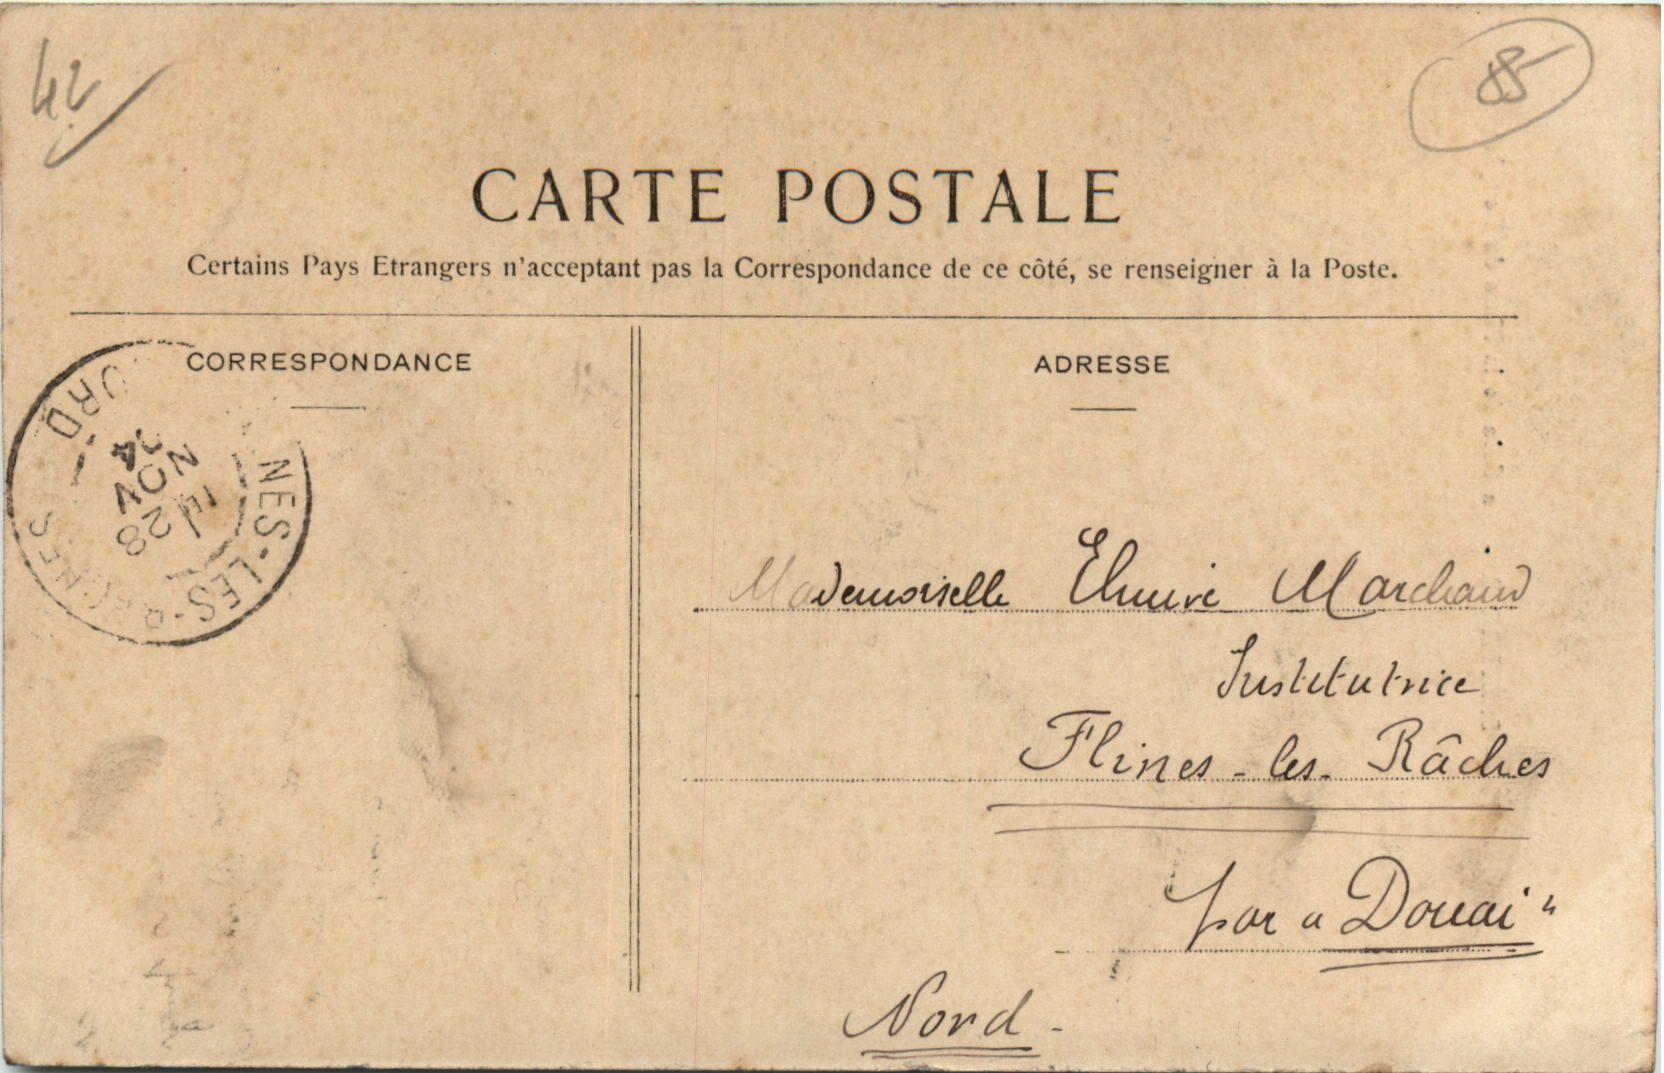 42
85
CARTE POSTALE
Certains Pays Etrangers n'acceptant pas la Correspondance de ce côté, se renseigner à la Poste.
CORRESPONDANCE
ADRESSE
NES-LES-RACHES
NORD
28
NOV
04
Mademoiselle Elmire Marchand
Institutrice
Flines-les-Râches
par "Douai"
Nord-